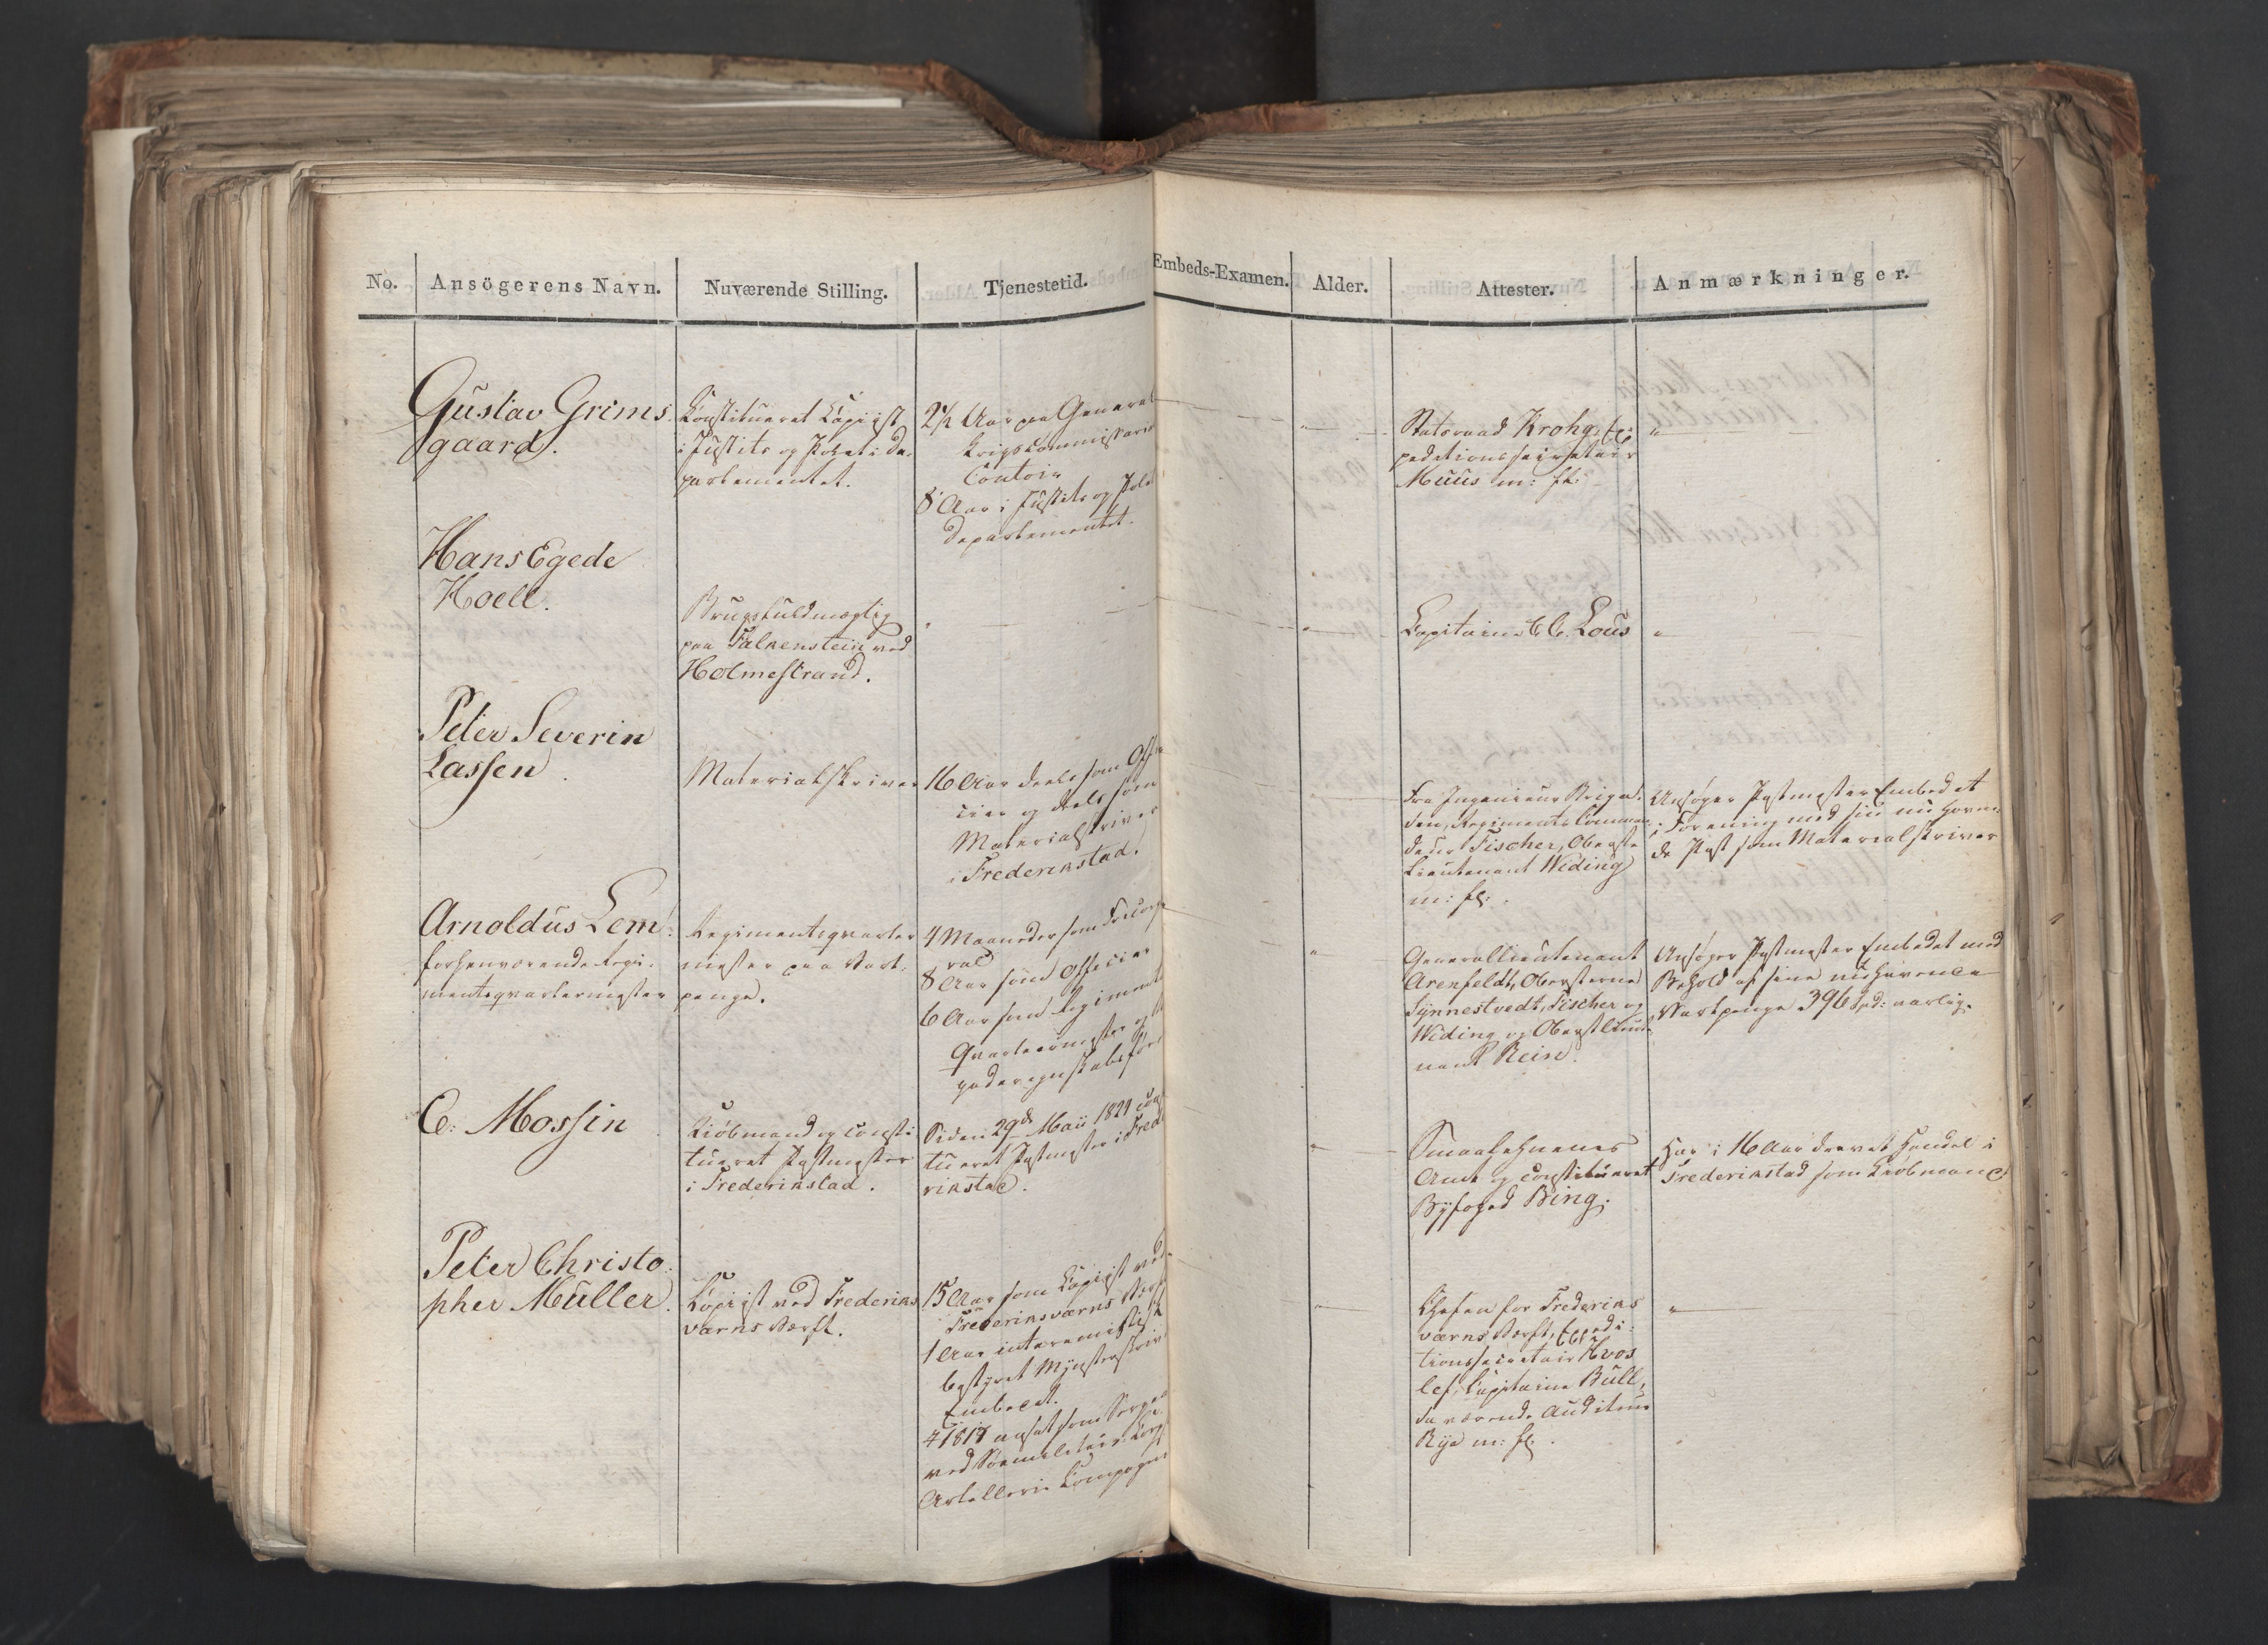 No.
Ansögerens Navn.
Nuværende Stilling.
Tjenestetid.
Embeds-Examen.
Alder.
Attester.
Anmærkninger.
Gustav Grims-
gaard.
Constitueret Copiist
i Justits og Politi De-
partementet.
2½ Aar paa General
Krigscommissari
Contoir
8 Aar i Justits og Poli
Departementet.
Statsraad Krohg, Ex-
peditionssecretair
Muus m: fl:
Hans Egede
Hoell.
Brugsfuldmægtig
paa Falkenstein ved
Holmestrand.
Capitaine C. C. Lous
Peter Severin
Lassen.
Materialskriver
16 Aar deels som Offi
cier og deels som
Materialskriver
i Frederikstad.
Fra Ingenieur Briga-
den, Regimentscomman-
deur Fischer, Oberste
Lieutenant Weding
m: fl:
Ansøger Postmester Embedet
i Forening med sin nu haven-
de Post som Materialskriver
Arnoldus Lem
forhenværende Regi-
mentsqvartermester
Regimentsqvarteer
mester paa Vart-
penge.
4 Maaneder som
8 Aar som Officier
6 Aar som Regiments
Qvarteermester og
Generallieutenant
Arenfeldt, Obersterne
Synnestvedt, Fischer og
Weding og Oberstlieute
nant Rein.
Ansøger Postmester Embedet med
Behold af sine nu havende
Vartpenge 396 Spd: aarlig.
C: Mossin
Kiöbmand og consti-
tueret Postmester
i Frederikstad.
Siden 29de Maii 1821 const
tueret Postmester i Fred
rikstad.
Smaalehnenes
Amt og constitueret
Byfoged Bing.
Har i 16 Aar drevet Handel i
Frederikstad som Kiøbmand
Peter Christo-
pher Müller.
Copiist ved Frederiks
værns Værft.
15 Aar som Copiist ved
Frederiksværns Værft
1 Aar interimistisk
bestyret Mynsterskriv
Embedet.
1817 ansat som
ved Søemilitair Corp
Artillerie Compagni
Chefen for Frederiks
værns Værft, Expedi-
tionssecretair Hvos
lef, Capitaine Bull,
da værende Auditeur
Rye m: fl: